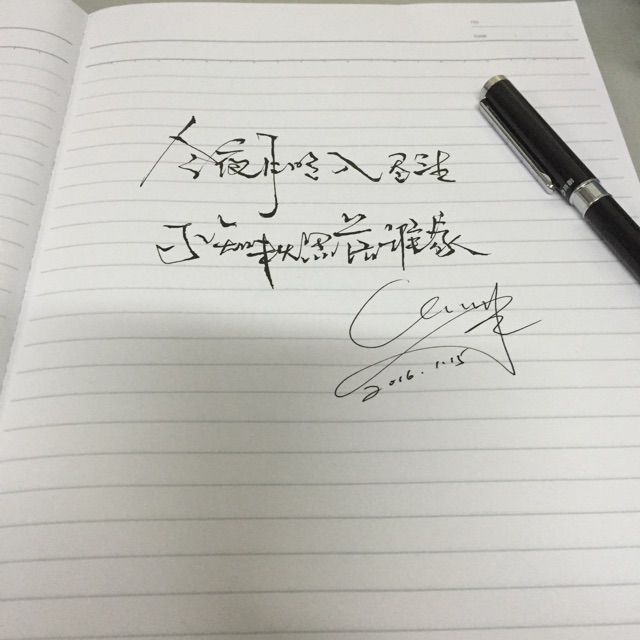 今夜月明人尽望
不知秋思落谁家
2016.1.15